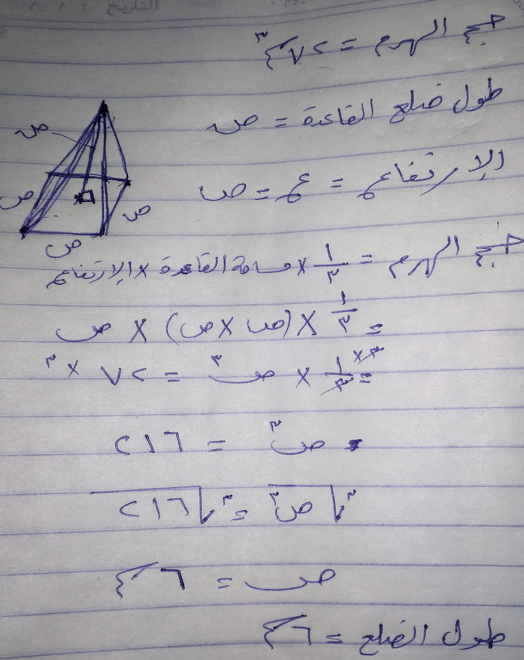 حجم الهرم = ٧٢ سم٣
طول ضلع القاعدة = ص
الإرتفاع = ع = ص
ص
ص
ص
ص
حجم الهرم = ١/٣ × مساحة القاعدة × الإرتفاع
= ١/٣ × (ص × ص) × ص
٣× = ١/٣ × ص٣ = ٧٢ × ٣
ص٣ = ٢١٦
٣√ص٣ = ٣√٢١٦
ص = ٦ سم
طول الضلع = ٦ سم